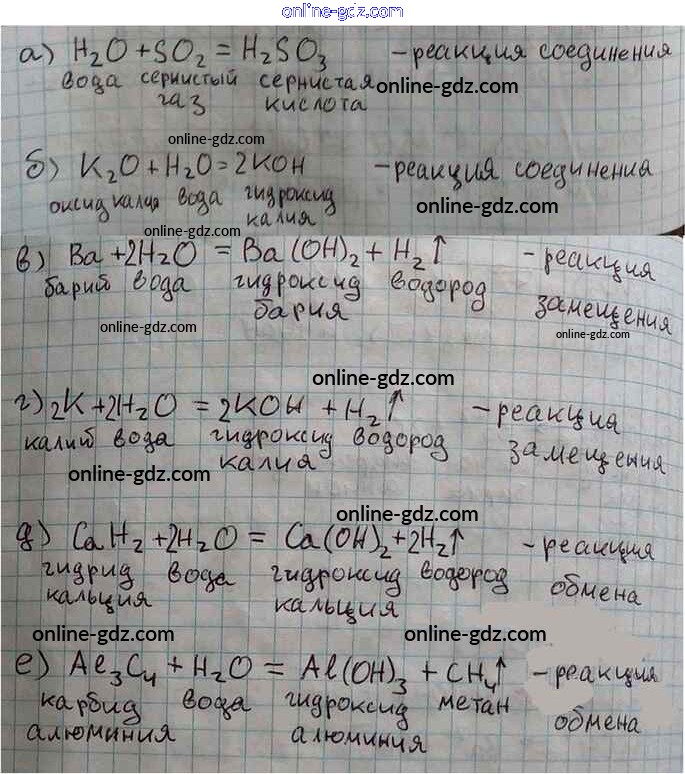 online-gdz.com
а) H₂O + SO₂ = H₂SO₃ - реакция соединения
вода сернистый сернистая online-gdz.com
газ кислота
online-gdz.com
б) K₂O + H₂O = 2KOH - реакция соединения
оксид калия вода гидроксид online-gdz.com
калия
online-gdz.com
в) Ba + 2H₂O = Ba(OH)₂ + H₂↑ - реакция
барий вода гидроксид водород замещения
бария
online-gdz.com online-gdz.com
online-gdz.com
г) 2K + 2H₂O = 2KOH + H₂↑ - реакция
калий вода гидроксид водород замещения
калия
online-gdz.com
online-gdz.com
д) CaH₂ + 2H₂O = Ca(OH)₂ + 2H₂↑ - реакция
гидрид вода гидроксид водород обмена
кальция кальция
online-gdz.com online-gdz.com
е) Al₃C₄ + H₂O = Al(OH)₃ + CH₄↑ - реакция
карбид вода гидроксид метан обмена
алюминия алюминия